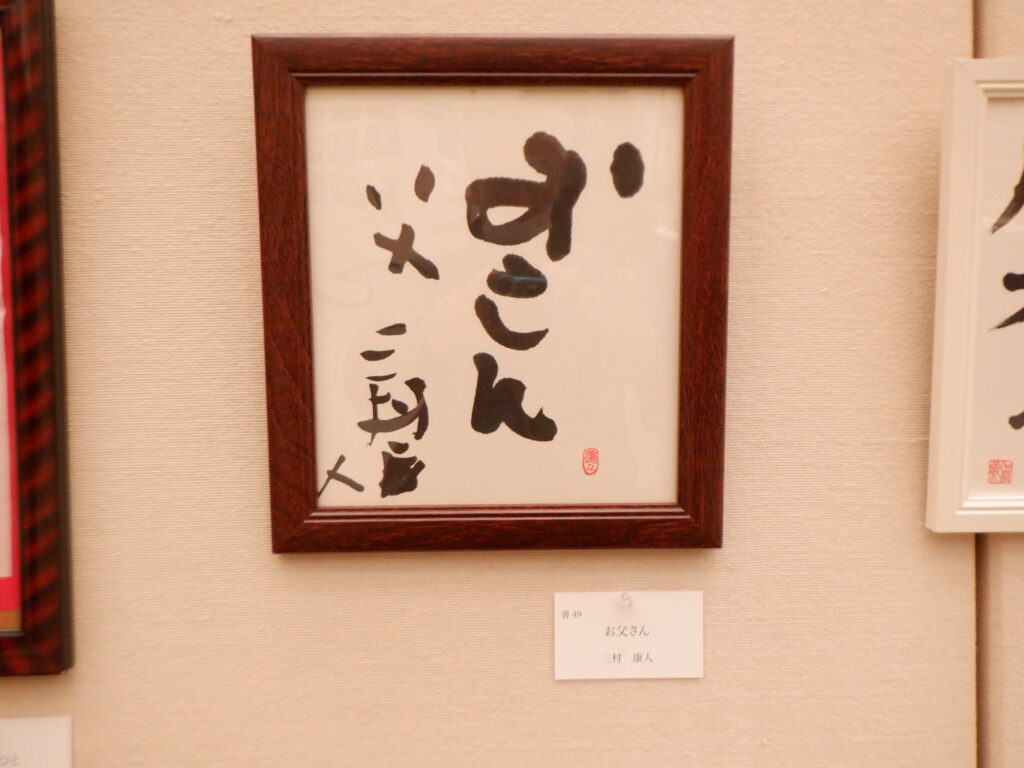 おさん
父
三村康
人
書 49
お父さん
三村　康人
ひと